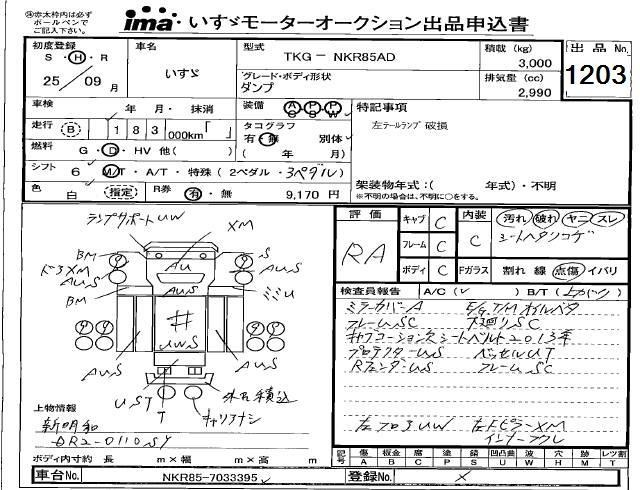 ㊟赤太枠内は必ず
ボールペンで
ご記入下さい。
ima いすゞモーターオークション出品申込書
初度登録
S・H・R
25／09月
車名
いすゞ
型式
TKG－NKR85AD
グレード・ボディ形状
ダンプ
積載 (kg)
3,000
排気量 (cc)
2,990
出品No.
1203
車検
年 月・ 抹消
走行 (B) 183 000km「 」
燃料 G・D・HV 他( )
シフト 6 M/T・A/T・特殊(2ペダル・3ペダル)
色 白 (指定)
R券 有・無 9,170 円
装備 AG PS PW
タコグラフ
有・無 別体
( 年 月)
特記事項
左テールランプ破損
架装物年式：( 年式)・不明
※不明の場合は、不明に○をする。
ランプサポートUW
XM
BM
S
AU
AUS
BM
#
UWS
AUS
AUS
UST
T
外に積込
キャリアナシ
上物情報
新明和
DR2-0110SY
ボディ内寸約 長 m×幅 m×高 m
評価
RA
キャブ C
フレーム C
ボディ C
内装
C
汚れ 破れ ヤニ スレ
シートヘタリコゲ
Fガラス 割れ 線 点傷 イバリ
検査員報告 A/C( ) B/T( )
ミラーカバーA E/G T/M オイルベタ
フレームSC 下廻りSC
シートベルト2013年
プロテクターUS ベッセルUT
RフェンダーUS フレームSC
左フロアUW 左FピラーXM
インナーワレ
記号
傷 A
板金 B
腐 C
塗 P
錆 S
凹凸曲 U
凹凸 W
穴 H
跡 M
レンズ割 T
車台No. NKR85-7033395
登録No.